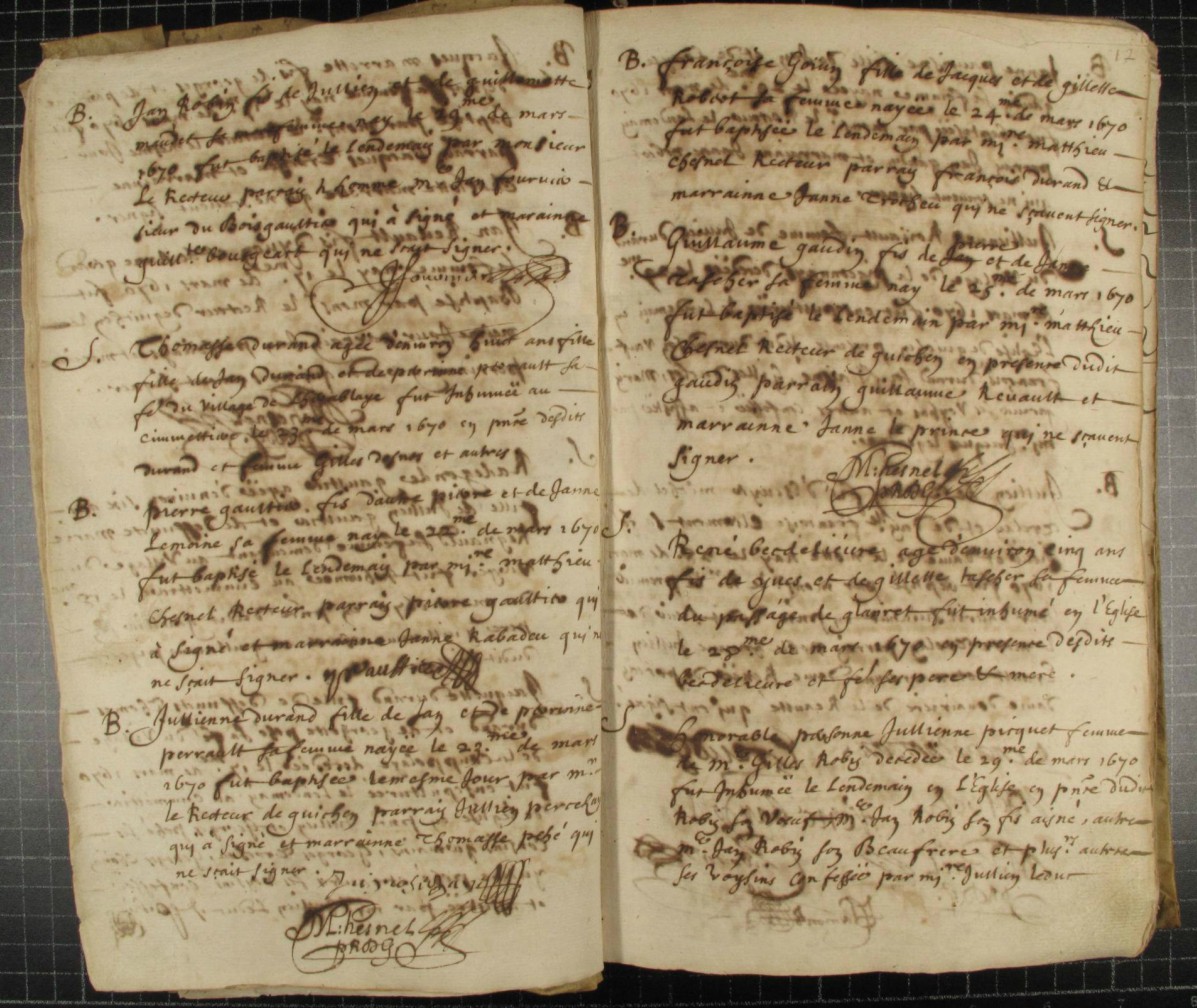 B. Jan Robin fis de Jullien et de guillemette
mauxet sa femme nay le 29.me de mars
1670 fut baptisé le lendemain par monsieur
Le Recteur parrain h. homme Me Jan fournier
sieur du Boisgaultier qui à signé et maraine
guill.te bougeart qui ne scait signer.
S. Thomasse durand agée denviron huict ans fille
fille de Jan Durand et de perrine perrault sa
fe. du village de fut Inhumée au
cimmetiere le de mars 1670 en pnce desdits
durand et femme Gilles et autres
B. pierre gaultier fis d'autre pierre et de Janne
Lemoine sa femme nay le 22.me de mars 1670
fut baptisé le Lendemain par mi.re Matthieu
Chesnel Recteur parrain pierre gaultier qui
à signé et marrainne Janne Rabadeu qui n
ne scait signer. p gaultier
B. Jullienne durand fille de Jan et de perrine
perrault sa femme nayee le 23.me de mars
1670 fut baptisee le mesme Jour par m.r
le Recteur de guichen parrain Jullien
qui à signé et marrainne Thomasse pehé qui
ne scait signer.
M: hesnel
pRddG
12
B. françoise Gouin fille de Jacques et de gillette
Robert sa femme nayee le 24.me de mars 1670
fut baptisée le lendemain par mi.re Matthieu
Chesnel Recteur parrain françois durand &
marrainne Janne qui ne scavent signer.
B. Guillaume gaudin fis de pierre et de Janne
tascher sa femme nay le 25.me de mars 1670
fut baptisé le Lendemain par mi.re matthieu
Chesnel Recteur de guichen en presence dudit
gaudin parrain guillaume Renault et
marrainne Janne le prince qui ne scavent
signer.
M: hesnel
pRddG
S. René becdelièure agé d'enuiron cinq ans
fis de yues et de gillette tascher sa femme
du passage de glanret fut inhumé en l'Eglise
le 28.me de mars 1670 en presence desdits
becdelieure et fe. ses pere & mere.
S. honorable personne Jullienne picquet femme
de M.e Gilles Robin decedée le 29.me de mars 1670
fut Inhumée le Lendemain en L'Eglise en pnce dudit
Robin M.e Jan Robin son fis aisné, autre
M.e Jan Robin son Beaufrere et plus.rs autres
ses voysins Confessée par mi.re Jullien Leduc